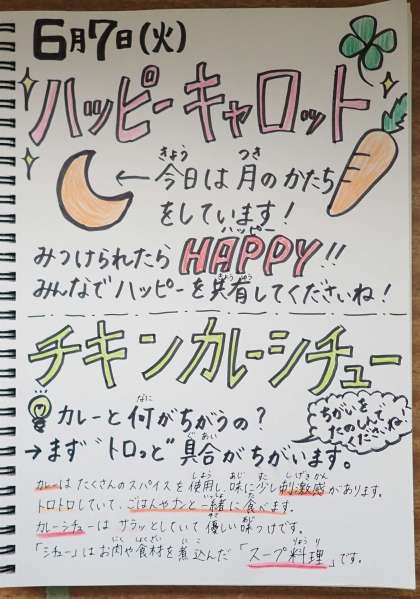 6月7日(火)
ハッピーキャロット
←今日は月のかたち
をしています!
みつけられたらHAPPY!!
みんなでハッピーを共有してくださいね!
チキンカレーシチュー
カレーと何がちがうの?
ちがいを
たのしんで
くださいね!
→まず"トロっと"具合がちがいます。
カレーはたくさんのスパイスを使用し、味に少し刺激感があります。
トロトロしていて、ごはんやナンと一緒に食べます。
カレーシチューはサラッとしていて優しい味つけです。
「シチュー」はお肉や食材を煮込んだ「スープ料理」です。